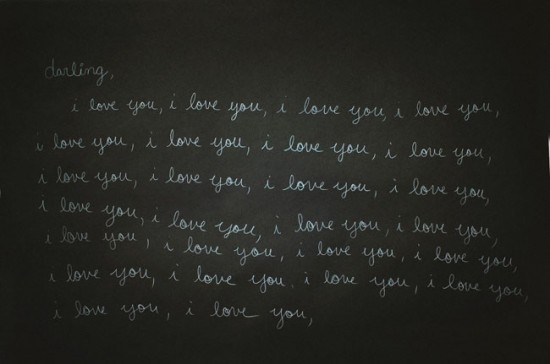 darling,
i love you, i love you, i love you, i love you,
i love you, i love you, i love you, i love you,
i love you, i love you, i love you, i love you,
i love you, i love you, i love you, i love you,
i love you, i love you, i love you, i love you,
i love you, i love you. i love you, i love you,
i love you, i love you,